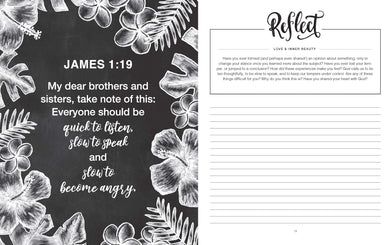 JAMES 1:19
My dear brothers and
sisters, take note of this:
Everyone should be
quick to listen,
slow to speak
and
slow to
become angry.
Reflect
LOVE & INNER BEAUTY
Have you ever formed (and perhaps even shared!) an opinion about something, only to
change your stance once you learned more about the subject? Have you ever lost your tem-
per, or jumped to a conclusion? How did these experiences make you feel? God calls us to lis-
ten thoughtfully, to be slow to speak, and to keep our tempers under control. Are any of these
things difficult for you? Why do you think this is? Have you shared your heart with God?